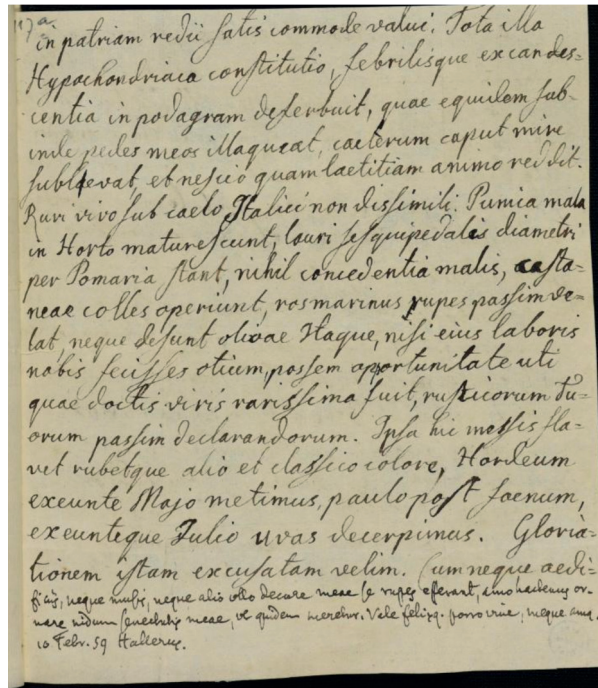 117a.
in patriam redii satis commode valui. Tota illa
Hypochondriaca constitutio, febrilisque excandes=
centia in podagram deferbuit, quae equidem sub-
inde pedes meos illaqueat, caeterum caput mire
sublevat, et nescio quam laetitiam animo reddit.
Ruri vivo sub caelo Italici non dissimili: Punica mala
in Horto maturescunt, lauri sesquipedalis diametri
per Pomaria stant, nihil concedentia malis, casta=
neae colles operiunt, rosmarinus rupes passim ve=
lat, neque desunt olivae Itaque, nisi eius laboris
nobis fecisses otium, possem opportunitate uti
quae doctis viris rarissima fuit, rusticorum tu=
orum passim declarandorum. Ipsa hic messis fla=
vet rubetque alio et classico colore, Hordeum
exeunte Majo metimus, paulo post faenum,
exeunteque Julio uvas decerpimus. Gloria=
tionem istam excusatam velim. Cum neque aedi=
ficiis, neque nubis, neque alio ullo decore meae se rupes efferant, amo hactenus or-
nare nidum senectutis meae, ut quidem meretur. Vale felixq. porro vive, meque ama.
10 Febr. 59 Hallerus.